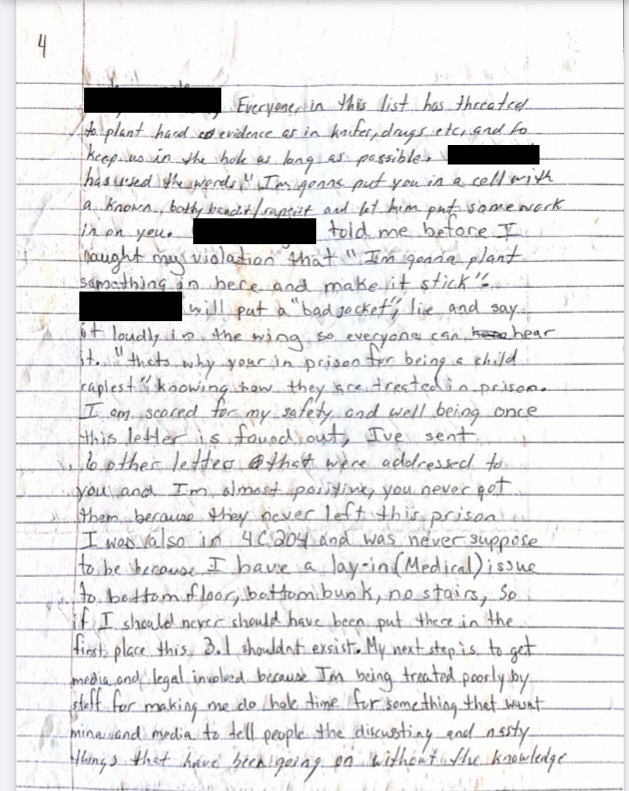 4
Everyone in this list has threated
to plant hard evidence as in knifes, drugs etc, and to
keep us in the hole as long as possible.
has used the words "I'm gonna put you in a cell with
a known, booty bandit/rapeist and let him put some work
in on you. told me before I
caught my violation that "I'm gonna plant
something in here and make it stick".
will put a "bad jacket", lie and say
it loudly in the wing so everyone can hear
it. "thats why your in prison for being a child
rapiest" knowing how they are treated in prison.
I am scared for my safety and well being once
this letter is found out, Ive sent
6 other letters that were addressed to
you and I'm almost posistive, you never got
them because they never left this prison
I was also in 4C204 and was never suppose
to be because I have a lay-in (Medical) issue
to bottom floor, bottom bunk, no stairs, So
if I should never should have been put there in the
first place this 3.1 shouldnt exsist. My next step is to get
media and legal involved because I'm being treated poorly by
staff for making me do hole time for something that wasnt
mine and media to tell people the discusting and nasty
things that have been going on without the knowledge